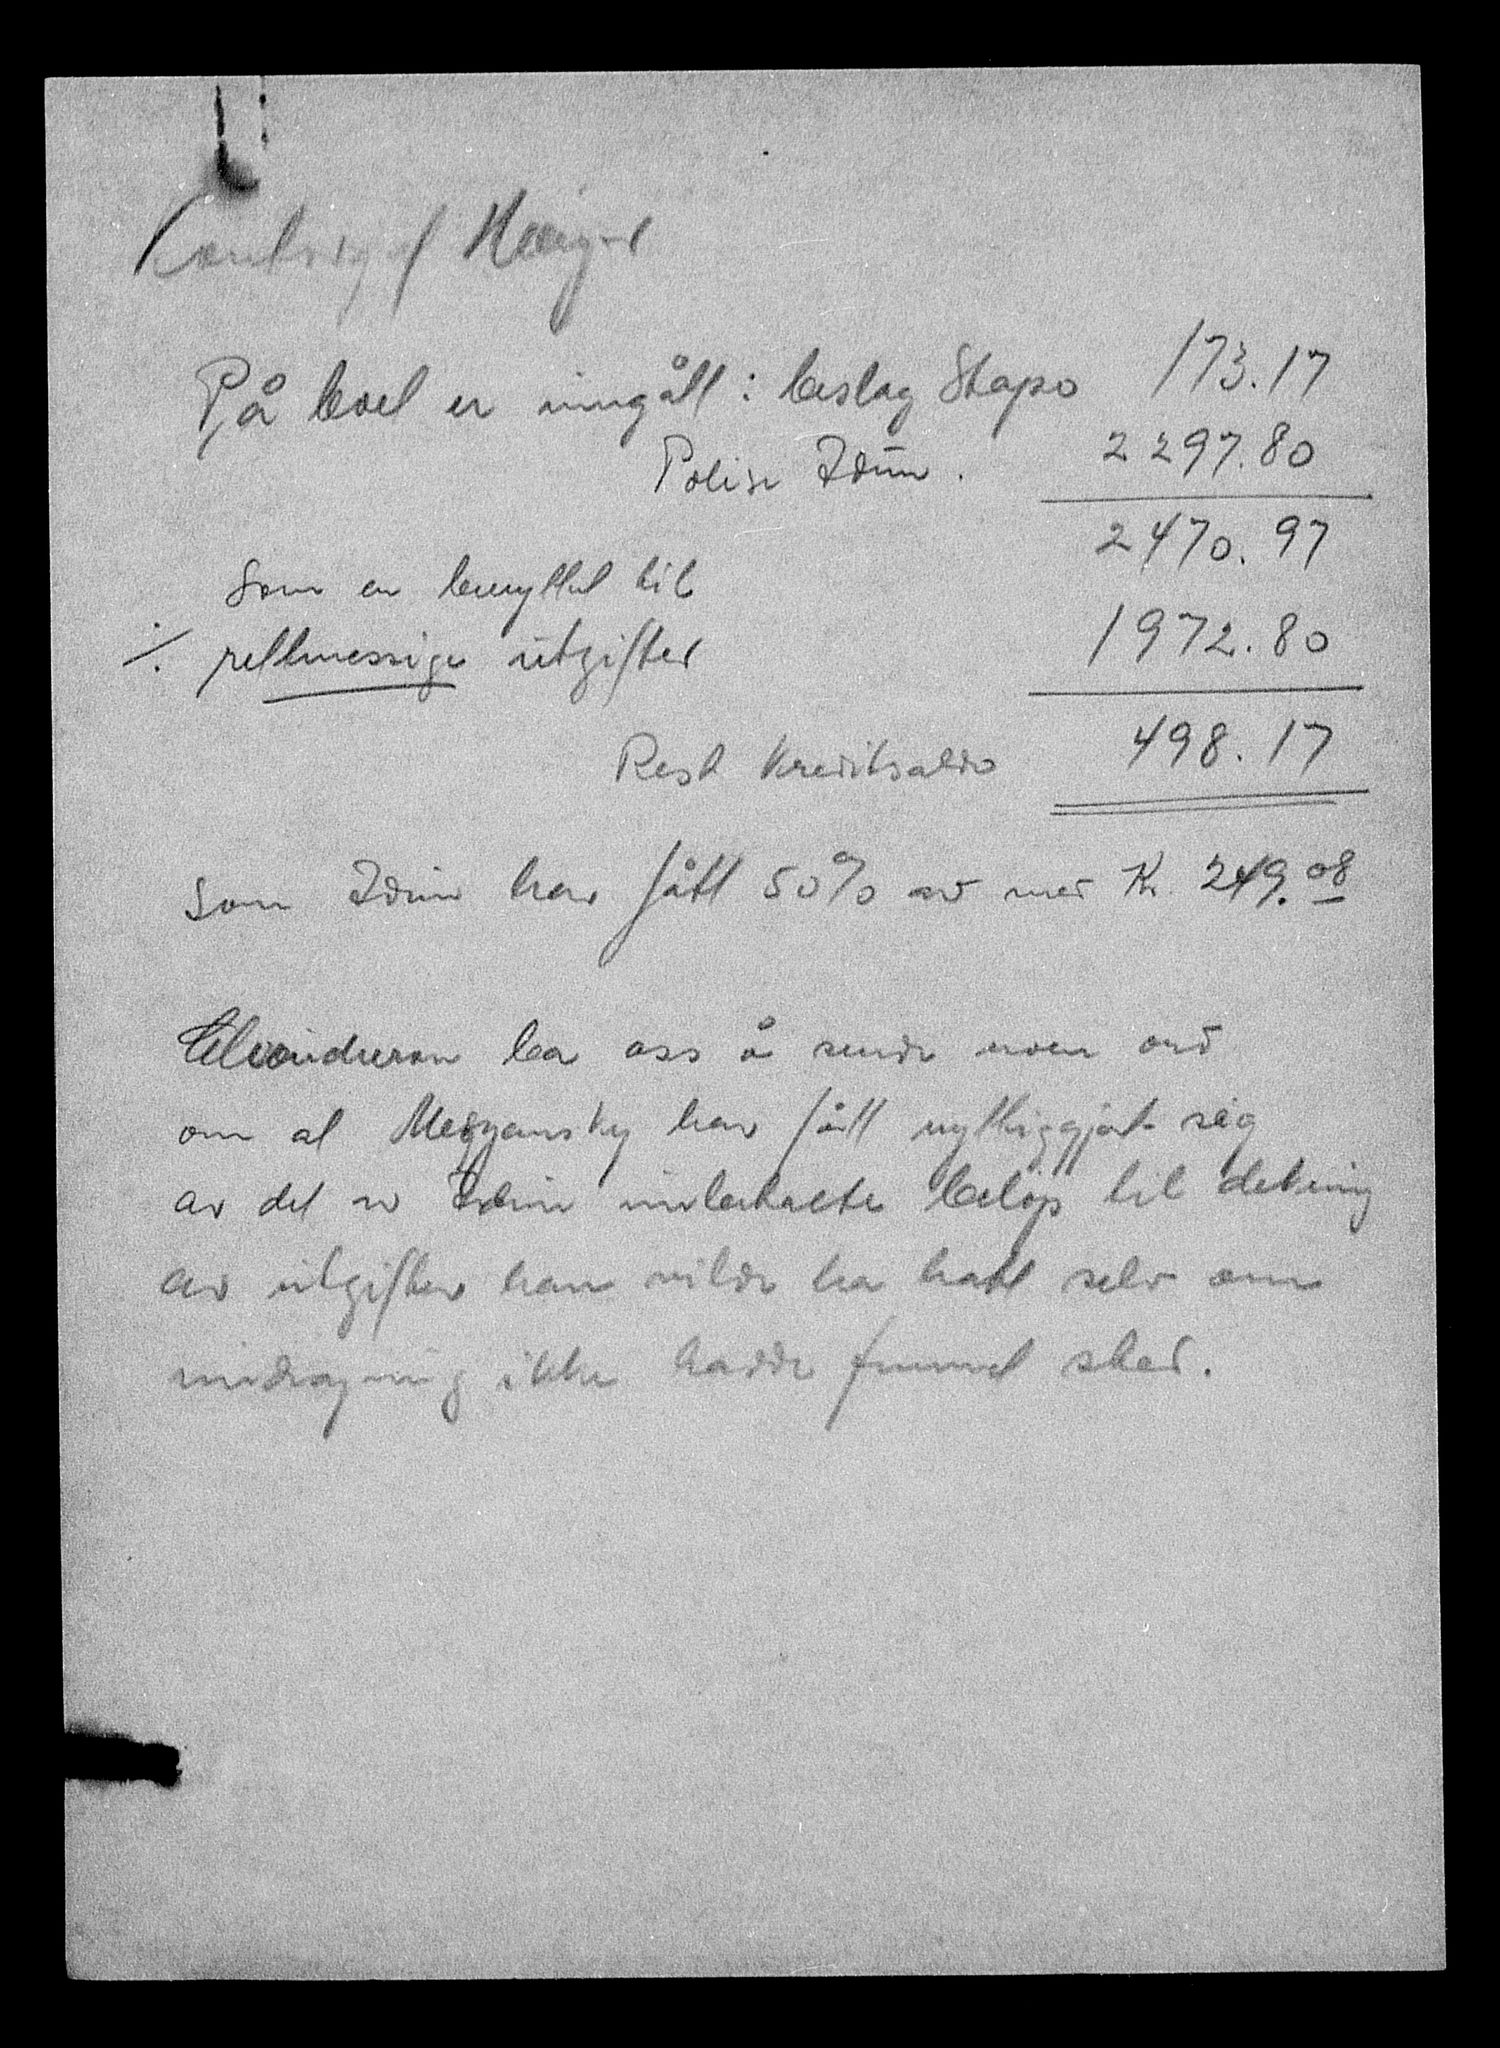 På boet er inngått: beslag Stapo 173.17
Polise Idun. 2297.80
2470.97
Som er benyttet til
./. rettmessige utgifter 1972.80
Rest Kreditsaldo 498.17
Som Idun har fått 50% av med Kr. 249.08
ba oss å sende noen ord
om at har fått nyttiggjort seg
av det av Idun innbetalte beløp til dekning
av utgifter han vilde ha hatt selv om
inndragning ikke hadde funnet sted.